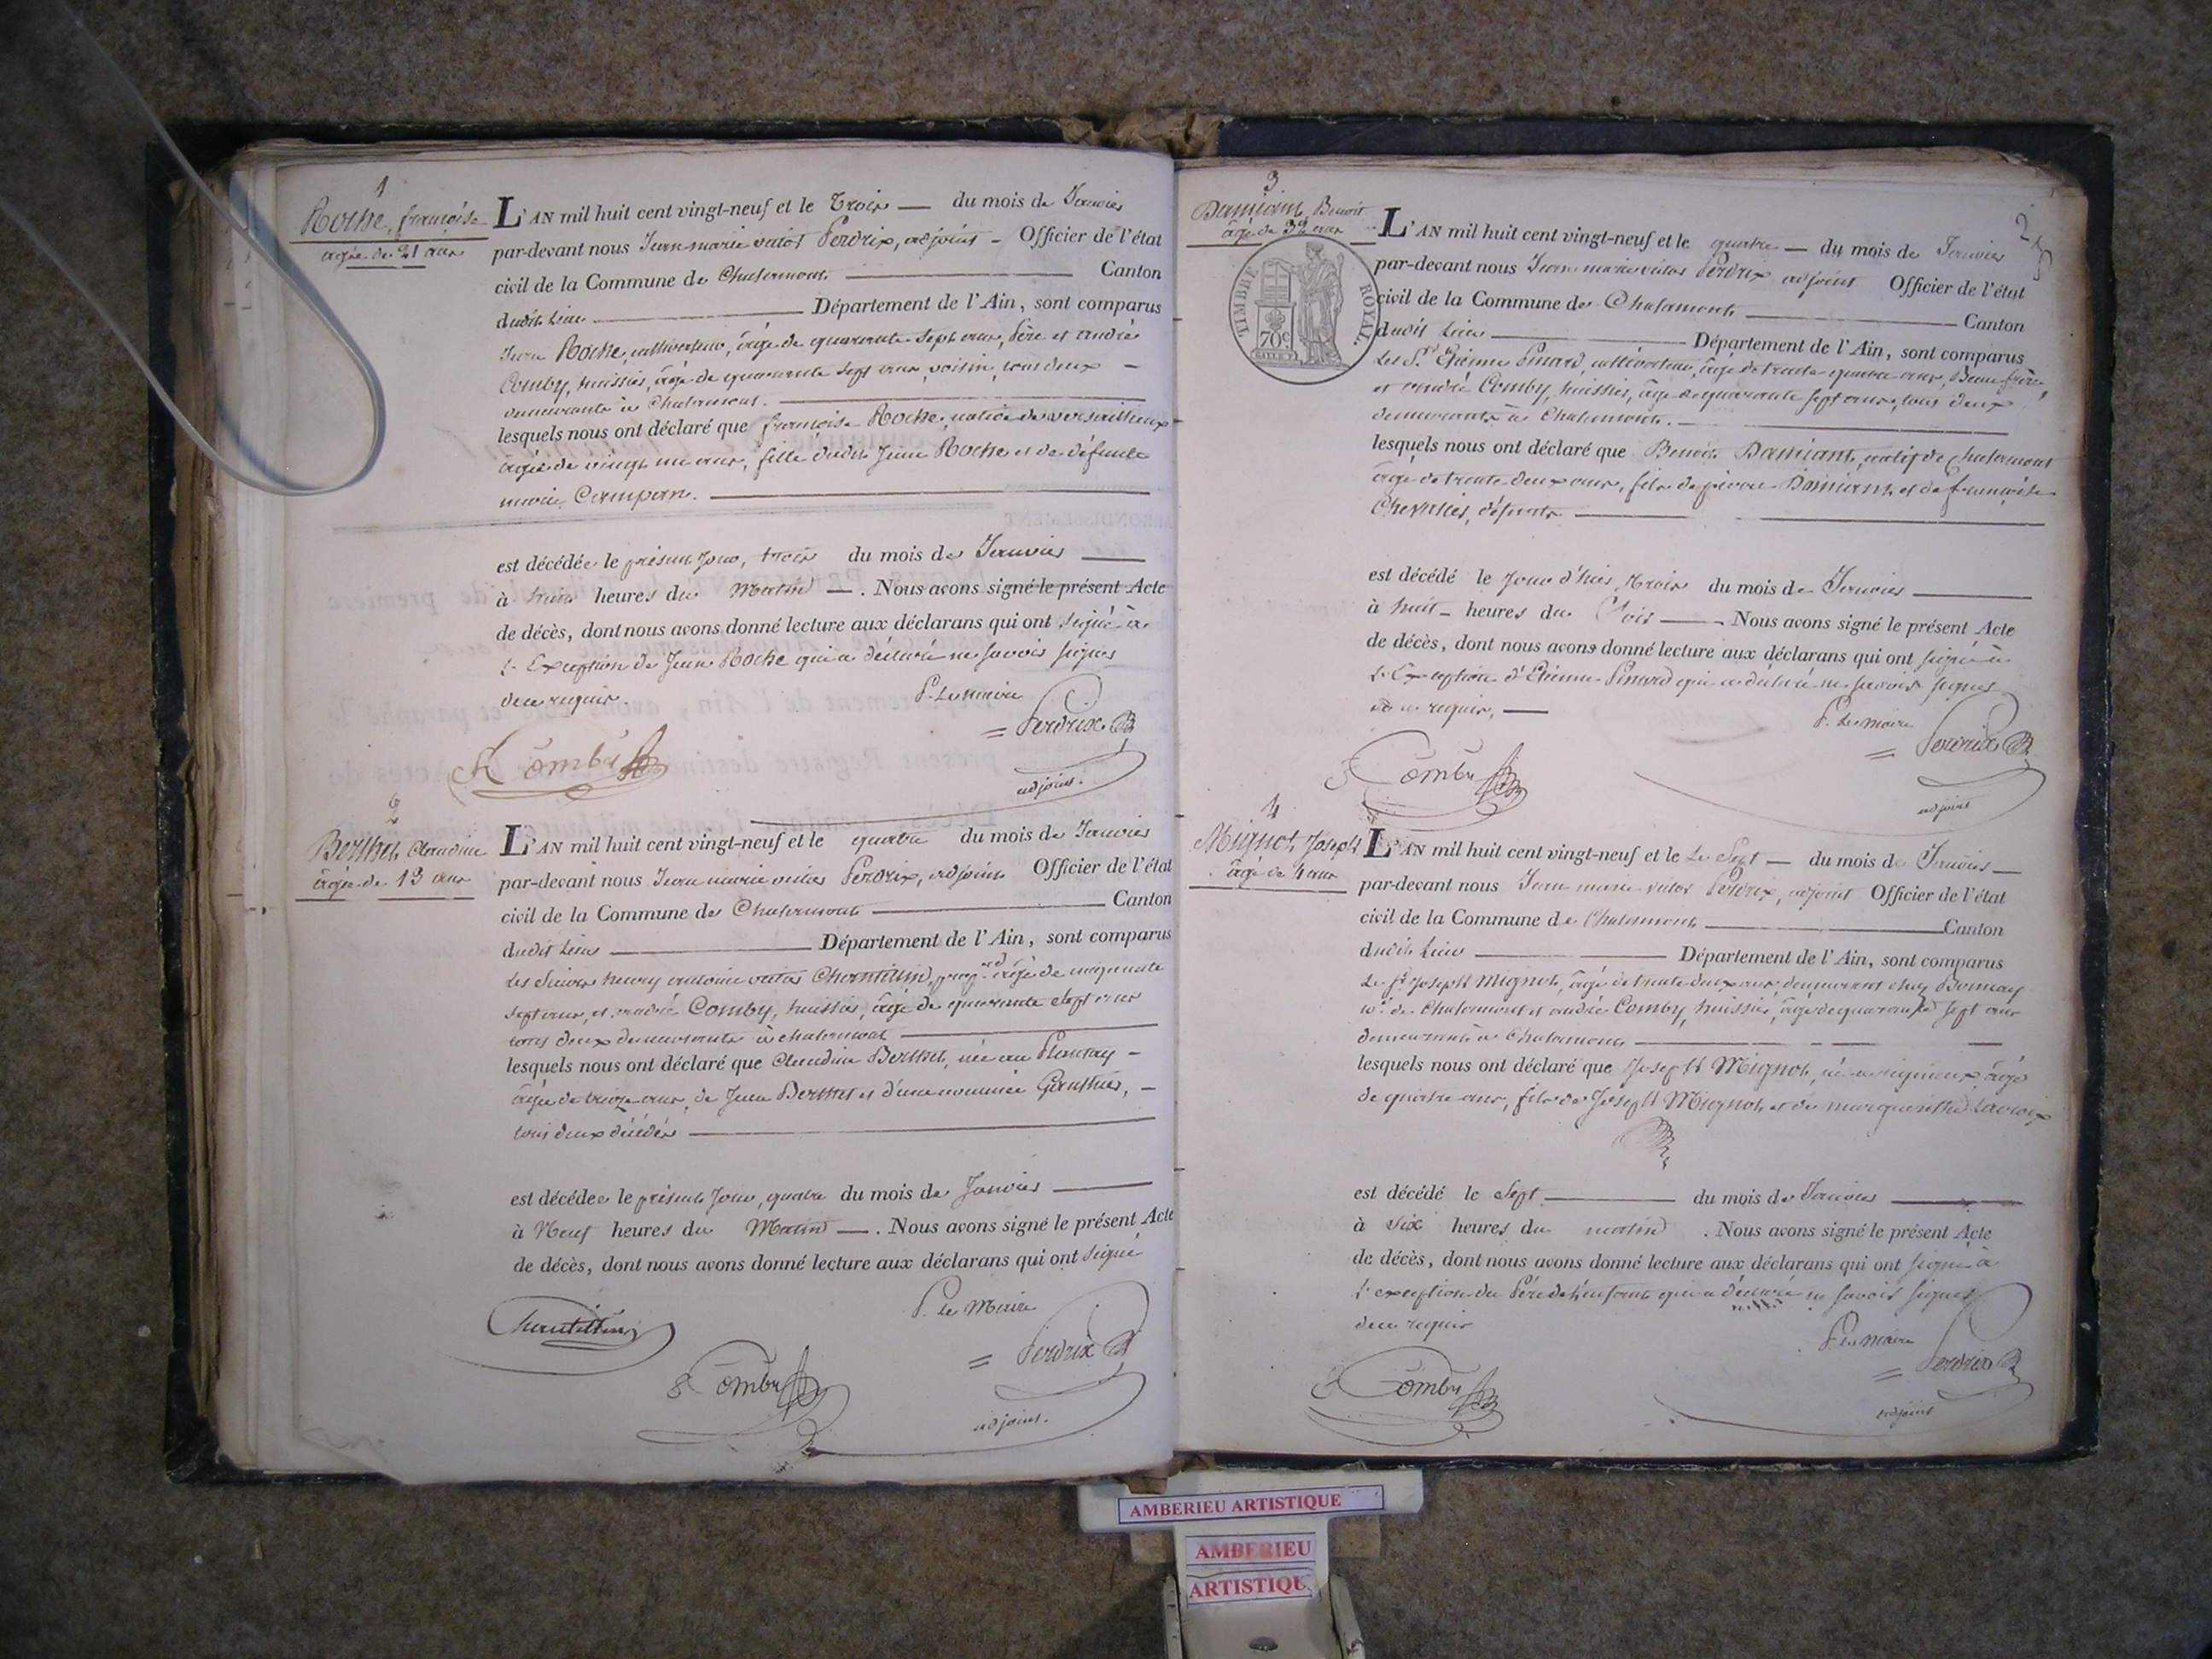 1
Roche, françoise
âgée de 21 ans
L'AN mil huit cent vingt-neuf et le Trois — du mois de Janvier
par-devant nous Jean marie victor Perdrix, adjoint - Officier de l'état
civil de la Commune de Chalamont — Canton
dudit lieu — Département de l'Ain, sont comparus
Jean Roche, cultivateur, âgé de quarante Sept ans, Père et andré
Comby, huissier, âgé de quarante Sept ans, voisin, tous deux -
demeurants à Chalamont. —
lesquels nous ont déclaré que françoise Roche, native de versailleux
âgée de vingt un ans, fille dudit Jean Roche et de défunte
marie Campan. —
est décédée le présent Jour, trois du mois de Janvier —
à huit heures du Matin —. Nous avons signé le présent Acte
de décès, dont nous avons donné lecture aux déclarans qui ont signé à
l'Exception de Jean Roche qui a déclaré ne savoir signer
de ce requis. P. le maire
= Perdrix
Comby
adjoint.
2
Berthet, Claudine
âgée de 13 ans
L'AN mil huit cent vingt-neuf et le quatre du mois de Janvier
par-devant nous Jean marie victor Perdrix, adjoint Officier de l'état
civil de la Commune de Chalamont — Canton
dudit lieu — Département de l'Ain, sont comparus
Les Sieurs henry antoine victor Chantillin, âgé de cinquante
Sept ans, et andré Comby, huissier, âgé de quarante Sept ans
tous deux demeurants à chalamont —
lesquels nous ont déclaré que Claudine Berthet, née au Plantay -
âgée de treize ans, de Jean Berthet et d'une nommée Gauthier, -
tous deux décédés —
est décédée le présent Jour, quatre du mois de Janvier —
à Neuf heures du Matin —. Nous avons signé le présent Acte
de décès, dont nous avons donné lecture aux déclarans qui ont signé
P. le Maire
Chantillin
= Perdrix
Comby
adjoint.
3
Damians, Benoit
âgé de 32 ans
TIMBRE ROYAL
70c
L'AN mil huit cent vingt-neuf et le quatre — du mois de Janvier
par-devant nous Jean marie victor Perdrix adjoint Officier de l'état
civil de la Commune de Chalamont — Canton
dudit lieu — Département de l'Ain, sont comparus
Les Srs Etienne Pinard, cultivateur, âgé de trente-quatre ans, Beau frère,
et andré Comby, huissier, âgé de quarante Sept ans, tous deux
demeurants à Chalamont. —
lesquels nous ont déclaré que Benoit Damians, natif de Chalamont
âgé de trente deux ans, fils de pierre Damians et de françoise
Chevalier, défunts —
est décédé le Jour d'hier, trois du mois de Janvier —
à huit - heures du Soir —. Nous avons signé le présent Acte
de décès, dont nous avons donné lecture aux déclarans qui ont signé à
l'Exception d'Etienne Pinard qui a déclaré ne savoir signer
de ce requis, — P. le maire
= Perdrix
Comby
adjoint
4
Mignot, Joseph
âgé de 4 ans
L'AN mil huit cent vingt-neuf et le Le Sept — du mois de Janvier —
par-devant nous Jean marie victor Perdrix, adjoint Officier de l'état
civil de la Commune de Chalamont — Canton
dudit lieu — Département de l'Ain, sont comparus
Le Sr Joseph Mignot, âgé de trente deux ans, demeurant chez
de Chalamont et andré Comby, huissier, âgé de quarante Sept ans
demeurant à Chalamont —
lesquels nous ont déclaré que Joseph Mignot, né à rigneux, âgé
de quatre ans, fils de Joseph Mignot, et de marguerithe Lacroix
est décédé le Sept — du mois de Janvier —
à Six heures du matin. Nous avons signé le présent Acte
de décès, dont nous avons donné lecture aux déclarans qui ont signé à
l'exception du Père de l'enfant qui a déclaré ne savoir signer
de ce requis
P. le maire
= Perdrix
Comby
adjoint
AMBERIEU ARTISTIQUE
AMBERIEU
ARTISTIQU